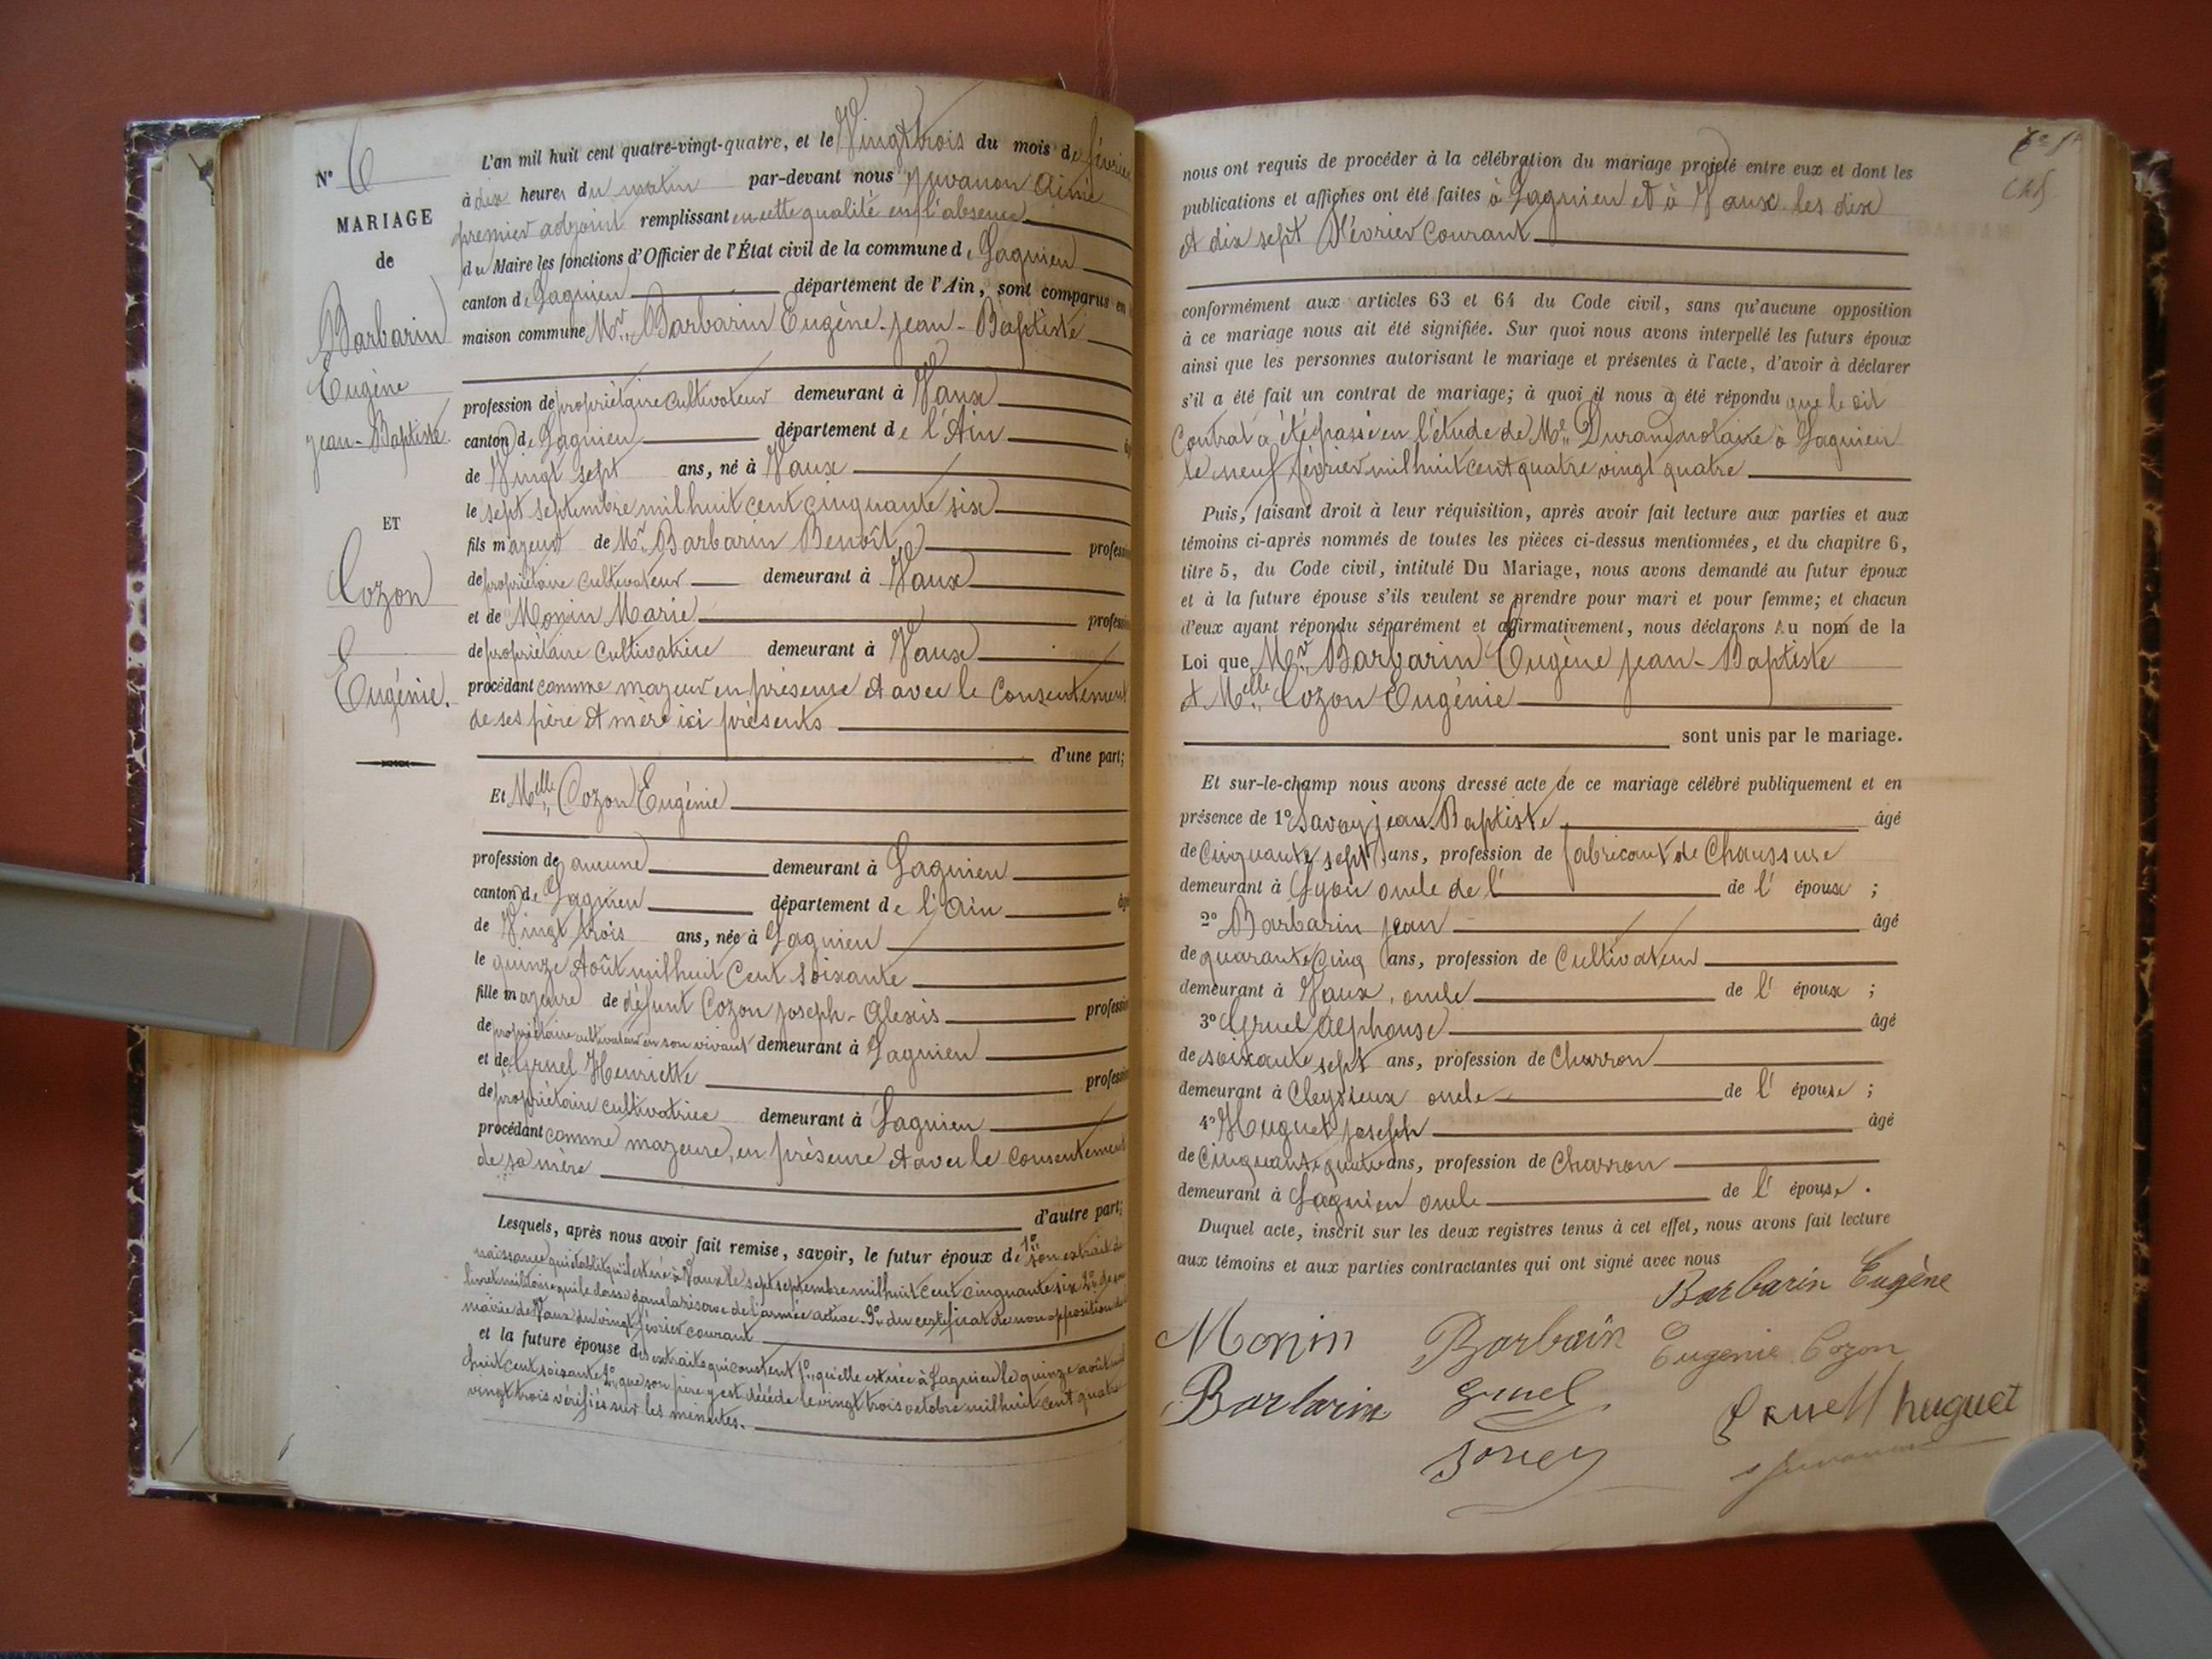 N° 6
MARIAGE
de
Barbarin
Eugène
jean-Baptiste.
ET
Cozon
Eugénie.
L'an mil huit cent quatre-vingt-quatre, et le Vingt trois du mois de février
à dix heures du matin par-devant nous Juvanon Aimé
premier adjoint remplissant en cette qualité en l'absence
du Maire les fonctions d'Officier de l'État civil de la commune de Lagnieu
canton de Lagnieu département de l'Ain, sont comparus en
maison commune Mr. Barbarin Eugène-jean-Baptiste
profession de propriétaire cultivateur demeurant à Vaux
canton de Lagnieu département de l'Ain
de Vingt sept ans, né à Vaux
le sept septembre mil huit cent cinquante six
fils majeur de Mr. Barbarin Benoît profession
de propriétaire cultivateur demeurant à Vaux
et de Monin Marie profession
de propriétaire cultivatrice demeurant à Vaux
procédant comme majeur en présence et avec le consentement
de ses père et mère ici présents
d'une part;
Et Melle. Cozon Eugénie
profession de aucune demeurant à Lagnieu
canton de Lagnieu département de l'Ain
de Vingt trois ans, née à Lagnieu
le quinze Août mil huit cent soixante
fille majeure de défunt Cozon joseph-Alexis profession
de propriétaire cultivateur en son vivant demeurant à Lagnieu
et de Gruel Henriette profession
de propriétaire cultivatrice demeurant à Lagnieu
procédant comme majeure, en présence et avec le consentement
de sa mère
d'autre part;
Lesquels, après nous avoir fait remise, savoir, le futur époux de 1° son extrait de
naissance qui établit qu'il est né à Vaux le sept septembre mil huit cent cinquante six 2° de son
livret militaire qui le classe dans la réserve de l'armée active. 3° du certificat de non opposition de
mairie de Vaux du vingt février courant
et la future épouse des extraits qui constent 1° qu'elle est née à Lagnieu le quinze août mil
huit cent soixante 2° que son père y est décédé le vingt trois octobre mil huit cent quatre
vingt trois vérifiés sur les minutes.
nous ont requis de procéder à la célébration du mariage projeté entre eux et dont les
publications et affiches ont été faites à Lagnieu et à Vaux les dix
et dix sept Février courant
conformément aux articles 63 et 64 du Code civil, sans qu'aucune opposition
à ce mariage nous ait été signifiée. Sur quoi nous avons interpellé les futurs époux
ainsi que les personnes autorisant le mariage et présentes à l'acte, d'avoir à déclarer
s'il a été fait un contrat de mariage; à quoi il nous a été répondu que le dit
Contrat a été passé en l'étude de Me. Durand notaire à Lagnieu
le neuf février mil huit cent quatre vingt quatre
Puis, faisant droit à leur réquisition, après avoir fait lecture aux parties et aux
témoins ci-après nommés de toutes les pièces ci-dessus mentionnées, et du chapitre 6,
titre 5, du Code civil, intitulé Du Mariage, nous avons demandé au futur époux
et à la future épouse s'ils veulent se prendre pour mari et pour femme; et chacun
d'eux ayant répondu séparément et affirmativement, nous déclarons Au nom de la
Loi que Mr. Barbarin Eugène jean-Baptiste
et Melle. Cozon Eugénie
sont unis par le mariage.
Et sur-le-champ nous avons dressé acte de ce mariage célébré publiquement et en
présence de 1° Savoy jean-Baptiste âgé
de Cinquante sept ans, profession de fabricant de Chaussure
demeurant à Lyon oncle de l' de l' époux ;
2° Barbarin jean âgé
de quarante cinq ans, profession de Cultivateur
demeurant à Vaux, oncle de l' époux ;
3° Gruel Alphonse âgé
de soixante sept ans, profession de Charron
demeurant à Cleyzieux oncle de l' épouse ;
4° Huguet joseph âgé
de Cinquante quatre ans, profession de Charron
demeurant à Lagnieu oncle de l' épouse.
Duquel acte, inscrit sur les deux registres tenus à cet effet, nous avons fait lecture
aux témoins et aux parties contractantes qui ont signé avec nous
Barbarin Eugène
Monin Barbarin Eugénie Cozon
Barbarin Gruel Gruel huguet